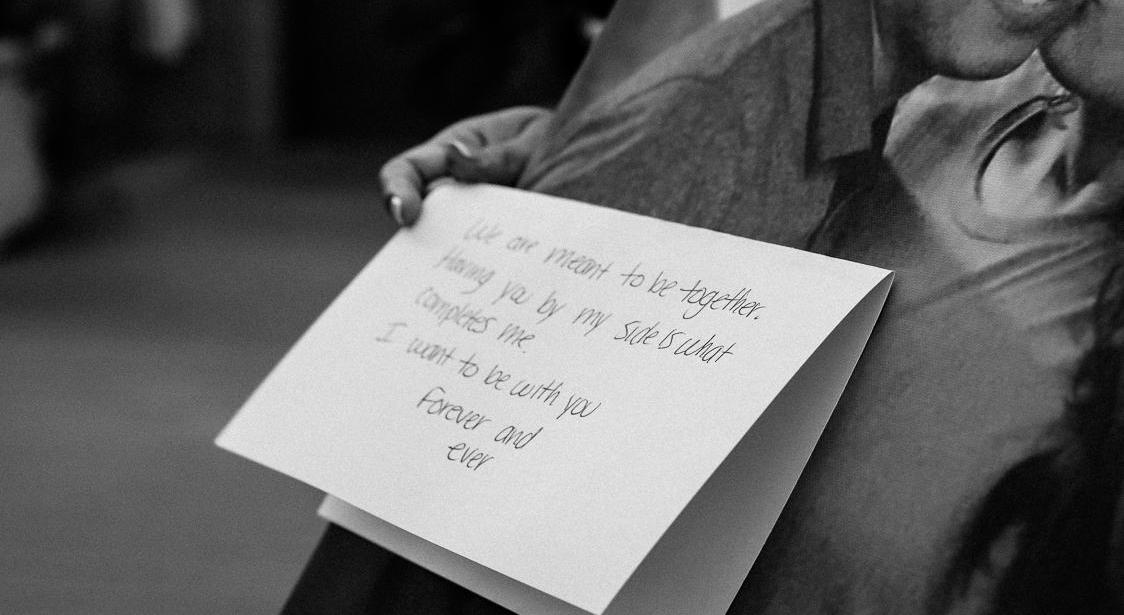 We are meant to be together.
Having you by my side is what
completes me.
I want to be with you
Forever and
ever